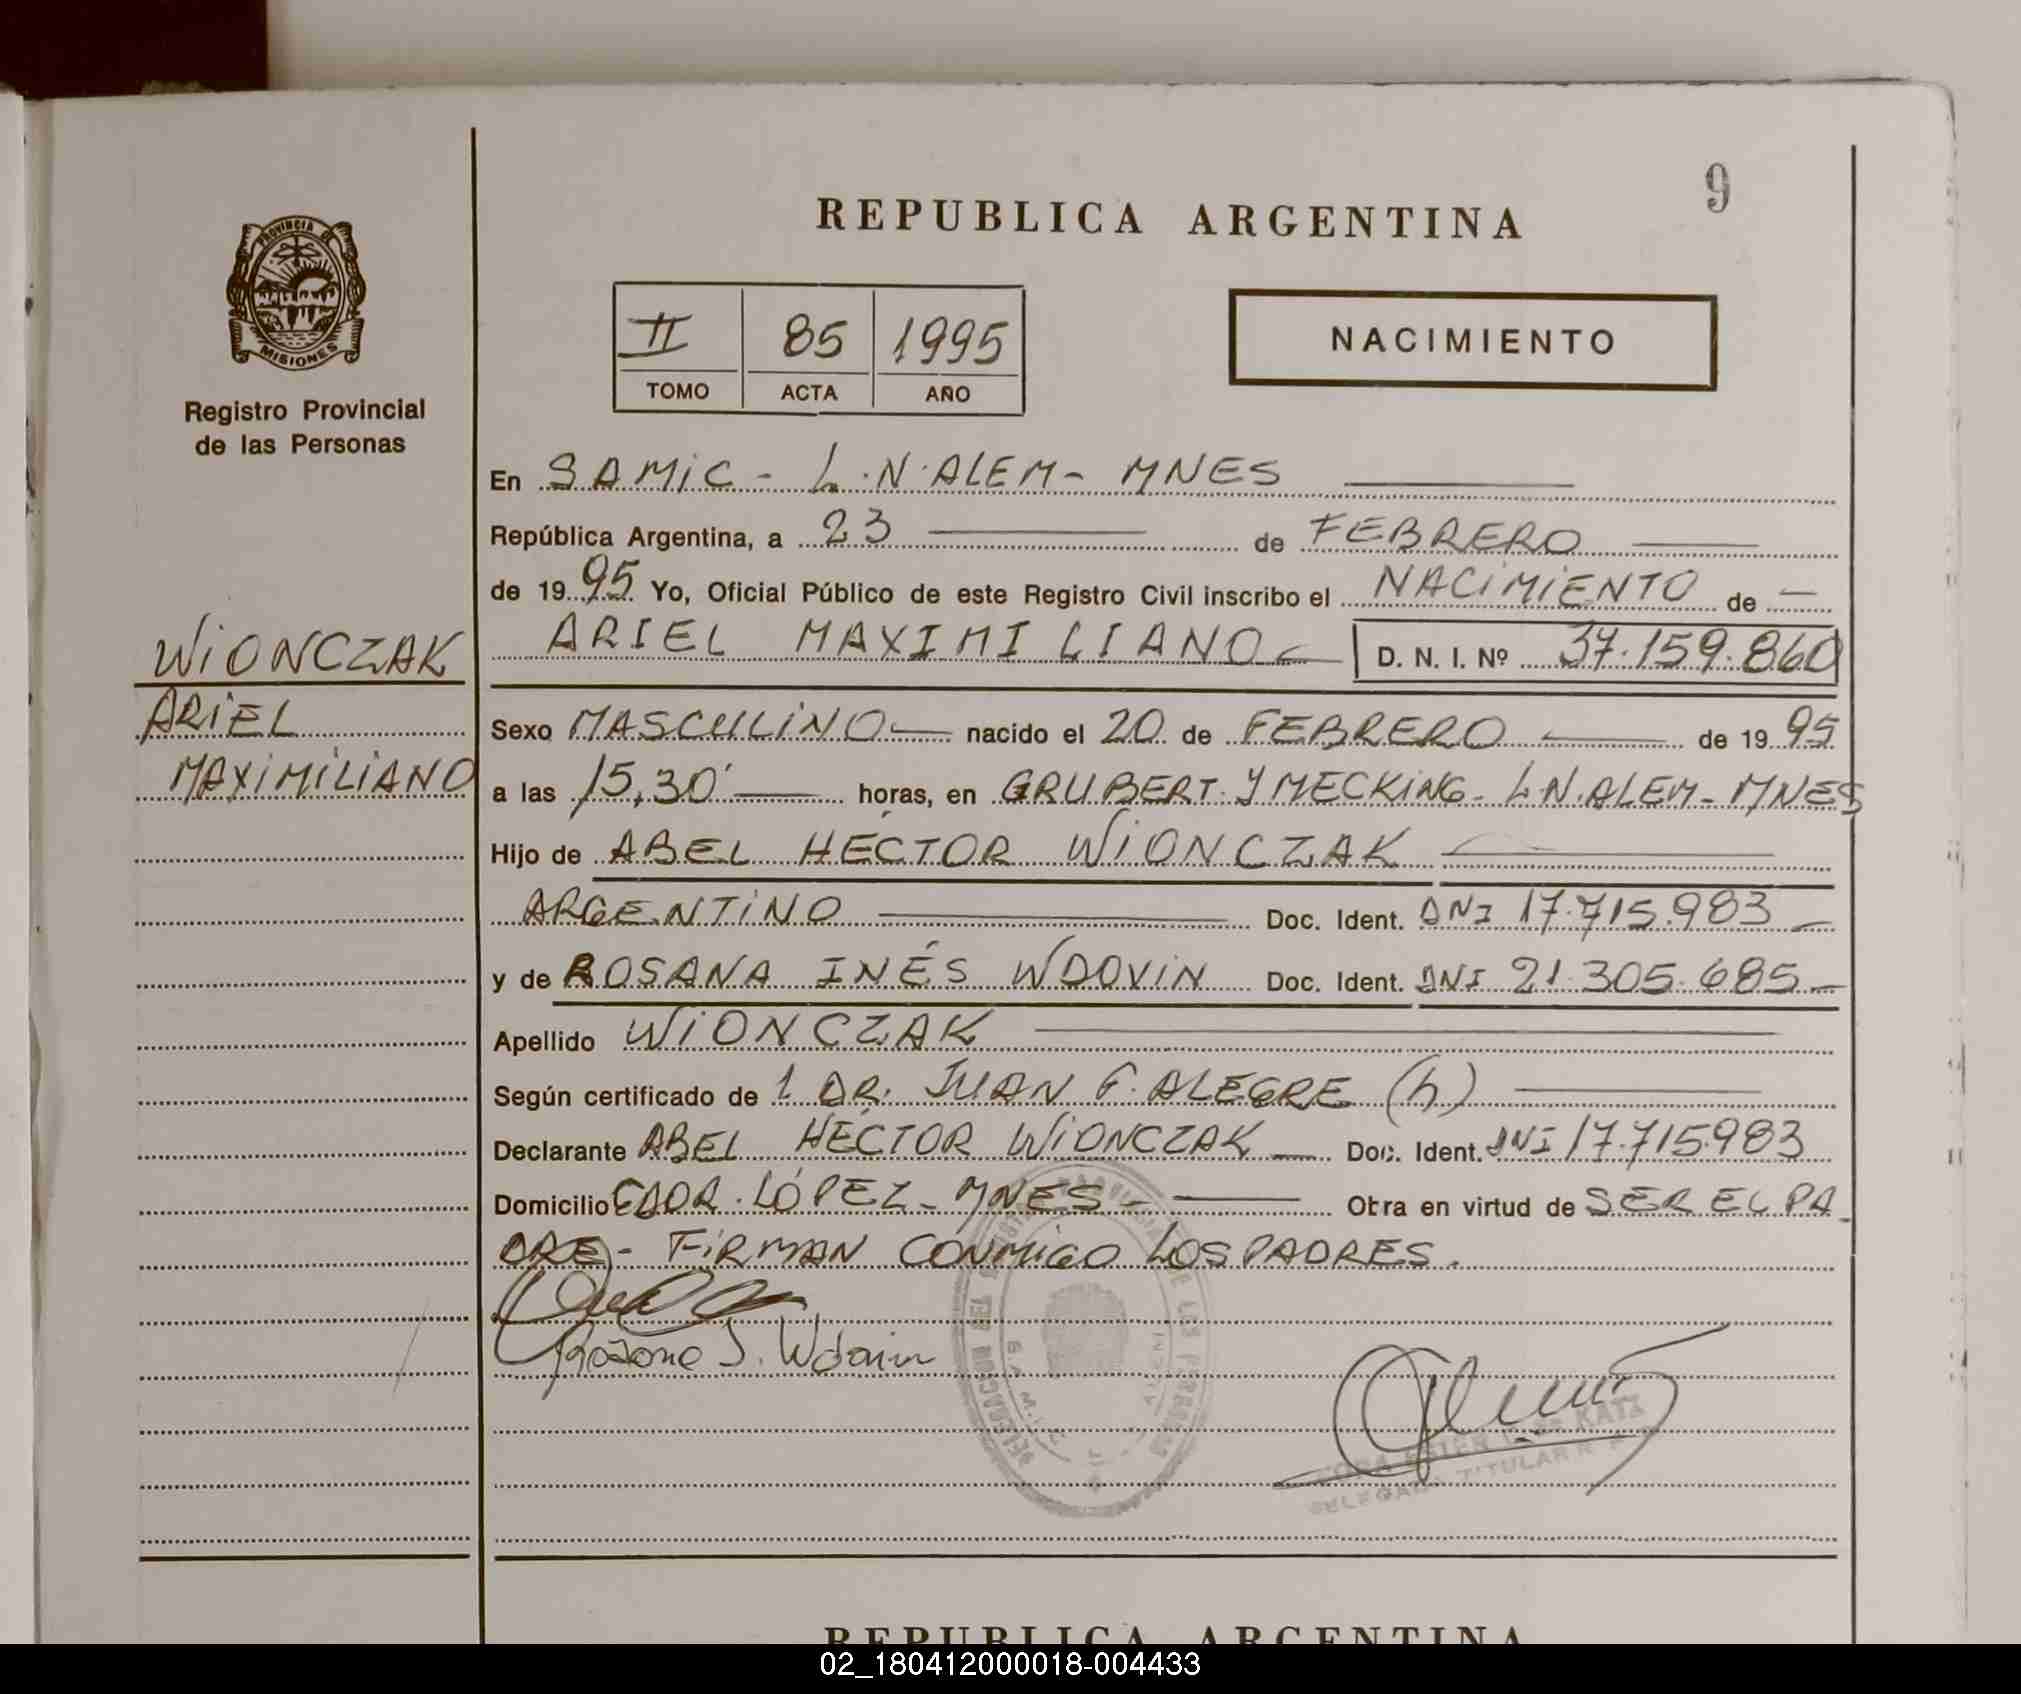 9
REPUBLICA ARGENTINA
PROVINCIA DE
MISIONES
Registro Provincial
de las Personas
II 85 1995
TOMO ACTA AÑO
NACIMIENTO
En SAMIC - L.N. ALEM - MNES
República Argentina, a 23 de FEBRERO
de 1995 Yo, Oficial Público de este Registro Civil inscribo el NACIMIENTO de
ARIEL MAXIMILIANO D. N. I. Nº 37.159.860
WIONCZAK
ARIEL
MAXIMILIANO
Sexo MASCULINO nacido el 20 de FEBRERO de 1995
a las 15,30' horas, en GRUBERT Y MECKING - L.N. ALEM - MNES
Hijo de ABEL HÉCTOR WIONCZAK
ARGENTINO Doc. Ident. DNI 17.715.983
y de ROSANA INÉS WDOVIN Doc. Ident. DNI 21.305.685
Apellido WIONCZAK
Según certificado de 1 DR. JUAN F. ALEGRE (h)
Declarante ABEL HÉCTOR WIONCZAK Doc. Ident. DNI 17.715.983
Domicilio CDOR. LÓPEZ - MNES - Otra en virtud de SER EL PA
DRE - FIRMAN CONMIGO LOS PADRES.
Rosana I. Wdovin
DE LAS PERSONAS
TITULAR
REPUBLICA ARGENTINA
02_180412000018-004433